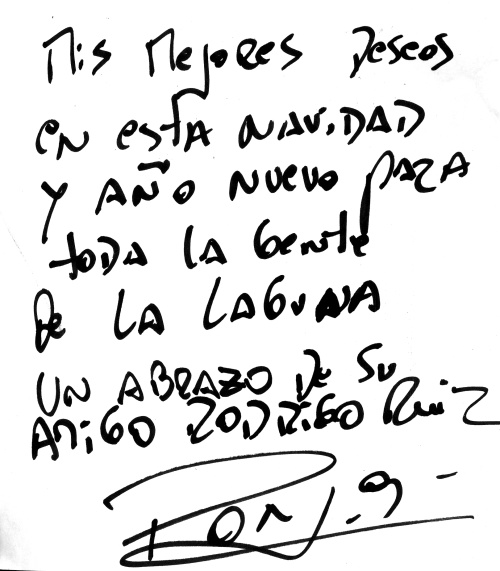 Mis Mejores Deseos
en esta NAViDAD
Y AÑO NUEVO PARA
toDA LA Gente
De LA LAGUNA
UN ABRAZO De Su
AMiGO RODRiGO Ruiz